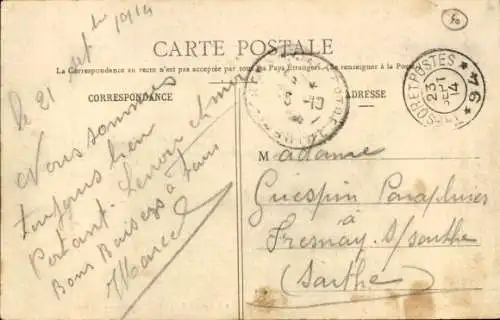 le 21 sept bre 1914
CARTE POSTALE
La Correspondance au recto n'est pas acceptée par tous les Pays Étrangers. (Se renseigner à la Poste)
CORRESPONDANCE
ADRESSE
Nous sommes
toujours bien
Portant.
Bons Baisers à tous
Marcel
Madame
Guespin Parapluies
à
Fresnay s/ sarthe
(Sarthe)
TRESOR ET POSTES
23
SEPT
14
* 94 *